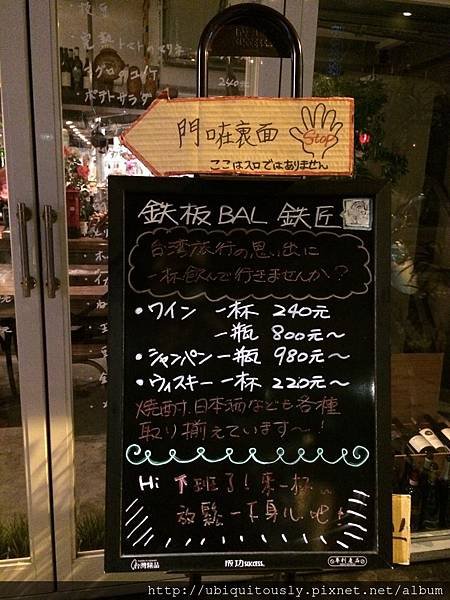 イタリア
240元
ポテトサラダ
門口在裏面
Stop
ここは入口ではありません
鉄板BAL 鉄匠
台湾旅行の思い出に
一杯飲んで行きませんか?
・ワイン 一杯 240元
一瓶 800元〜
・シャンパン一瓶 980元〜
・ウィスキー一杯 220元〜
焼酎、日本酒なども各種
取り揃えています〜!
Hi 下班了!來一杯...
放鬆一下身心吧!
台灣精品
成功success.
專利產品
http://ubiquitously.pixnet.net/album